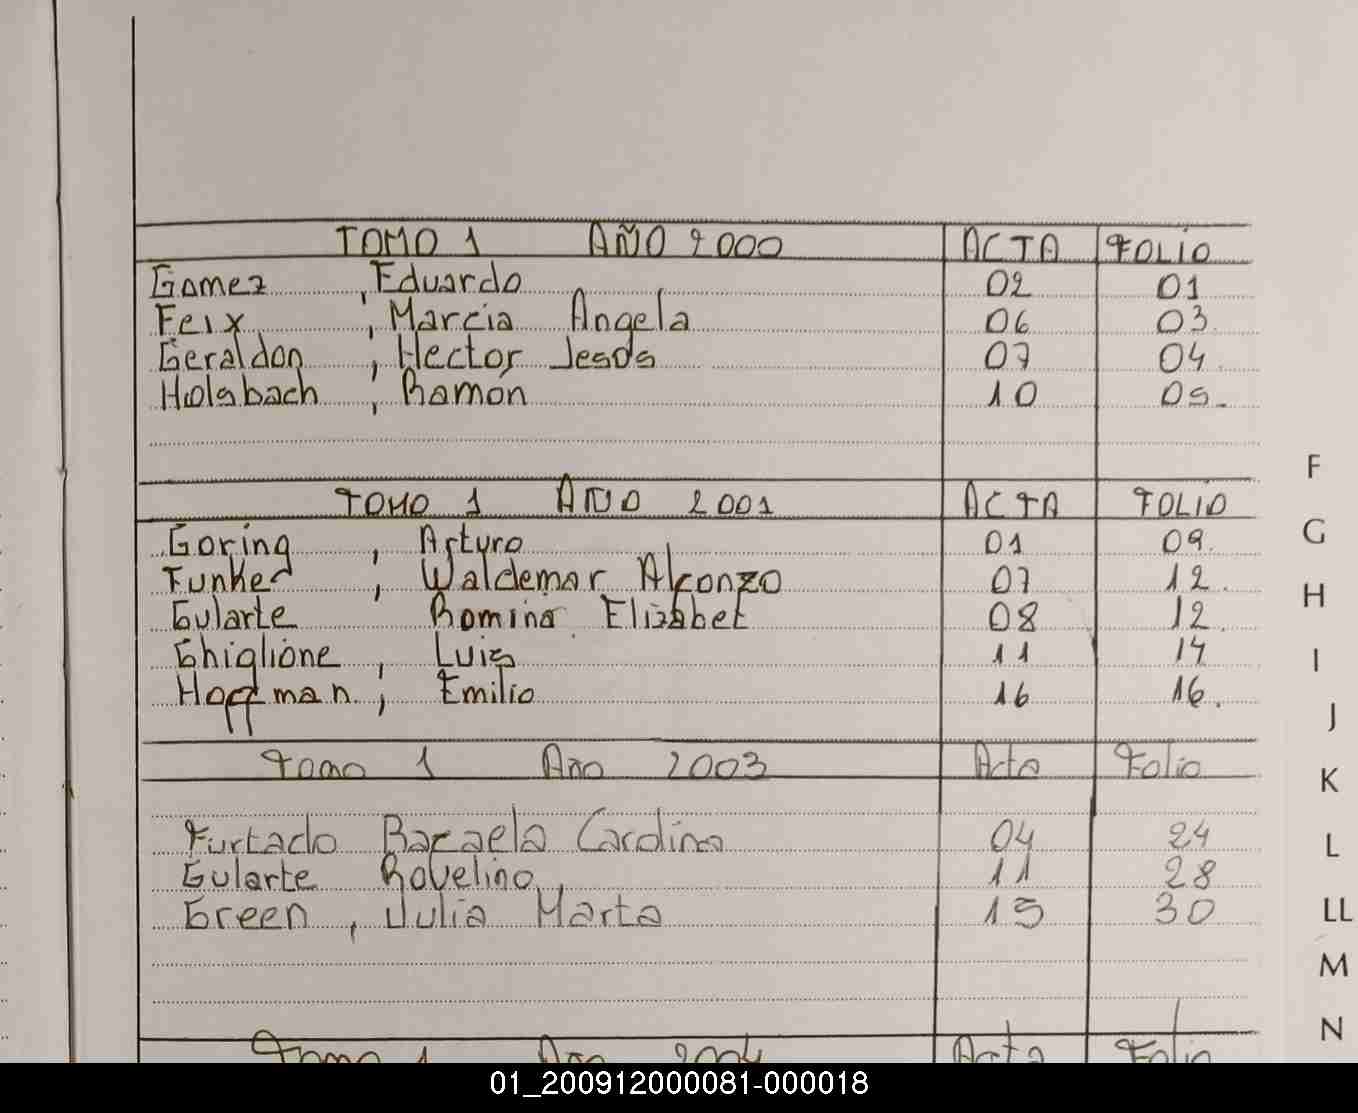 TOMO 1 AÑO 2000 ACTA FOLIO
Gomez , Eduardo 02 01
Feix , Marcia Angela 06 03
Geraldon , Hector Jesús 07 04.
Holsbach , Ramón 10 05.
TOMO 1 AÑO 2001 ACTA FOLIO
Goring , Arturo 01 09.
Funker , Waldemar 07 12.
Gularte Romina Elizabet 08 12.
Ghiglione , Luis 11 14
Hoffman , Emilio 16 16.
Tomo 1 Año 2003 Acta Folio
Furtado Carolina 04 24
Gularte Rovelino, 11 28
Green , Julia Marta 15 30
Tomo 1 Año 2004 Acta Folio
F
G
H
I
J
K
L
LL
M
N
01_200912000081-000018